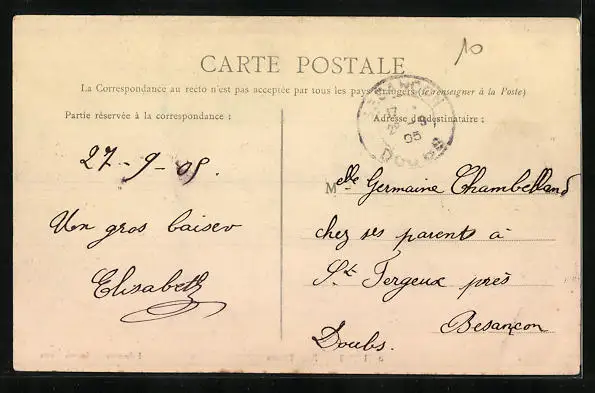 10
CARTE POSTALE
La Correspondance au recto n'est pas acceptée par tous les pays étrangers (se renseigner à la Poste)
Partie réservée à la correspondance :
Adresse du destinataire :
BESANCON
27 - 9
05
DOUBS
27-9-05.
Un gros baiser
Elisabeth
Melle Germaine Chambelland
chez ses parents à
St. Fergeux près
Besançon
Doubs.